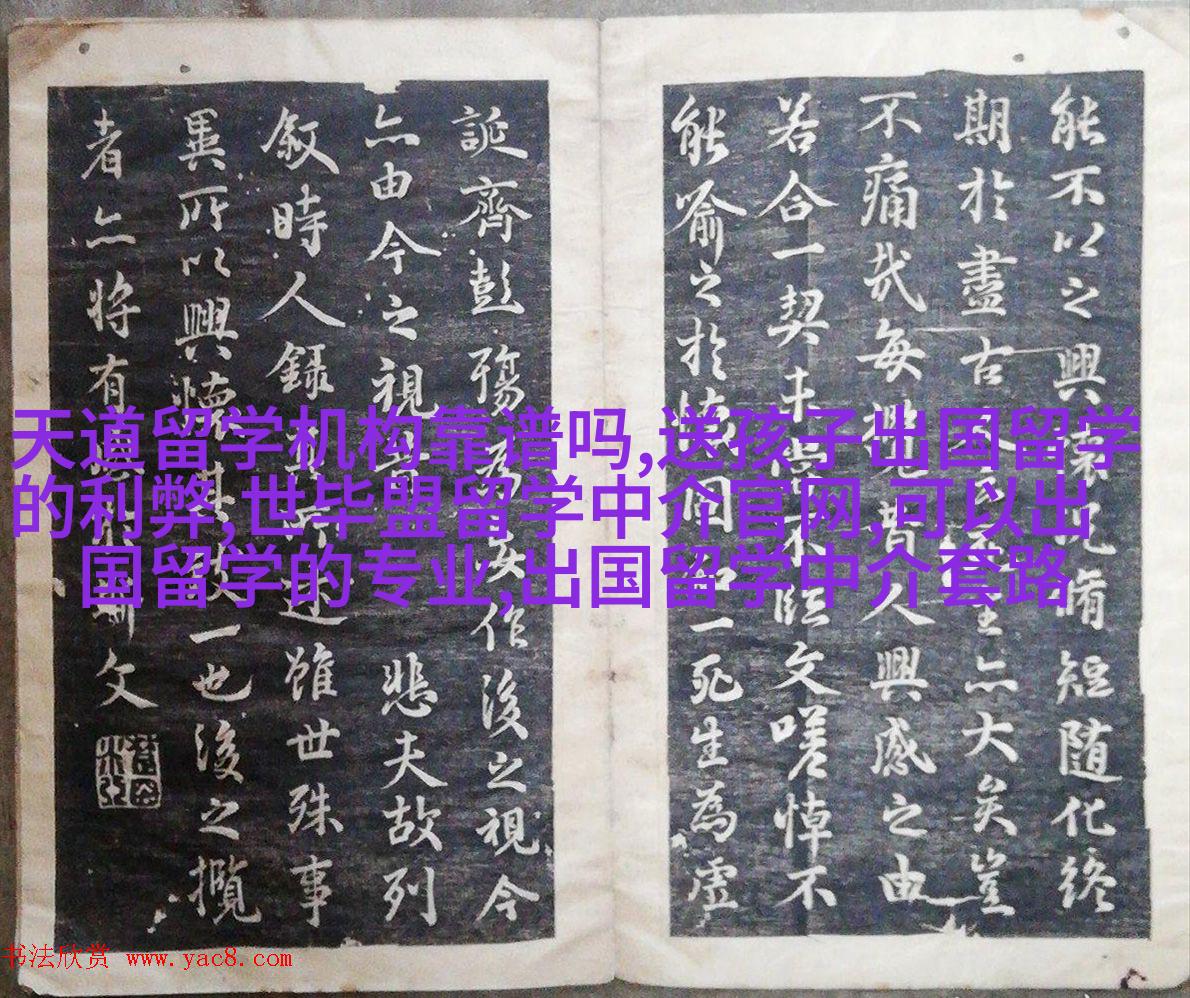 能不以之興懷况脩短随化终
期於盡古人云死生亦大矣豈
不痛哉每攬昔人興感之由
若合一契未嘗不臨文嗟悼不
能喻之於懷固知一死生為虛
誕齊彭殤為妄作後之視今
亦由今之視昔悲夫故列
敘時人錄其所述雖世殊事
異所以興懷其致一也後之攬
者亦將有感於斯文
天道留学机构靠谱吗,送孩子出国留学
的利弊,世毕盟留学中介官网,可以出
国留学的专业,出国留学中介套路
书法欣赏 www.yac8.com